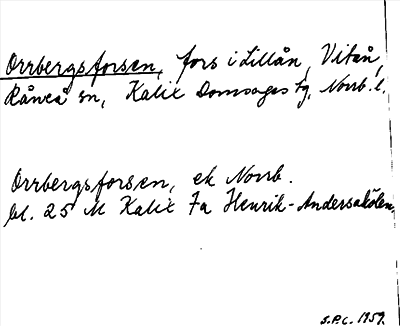 Orrbergsforsen, fors i Lillån, Vitån,
Råneå sn, Kalix Domsagas tg, Norrb. l.
Orrbergsforsen, ek Norrb.
bl. 25 M Kalix 7a Henrik-Andersakölen,
S.P.C. 1959.